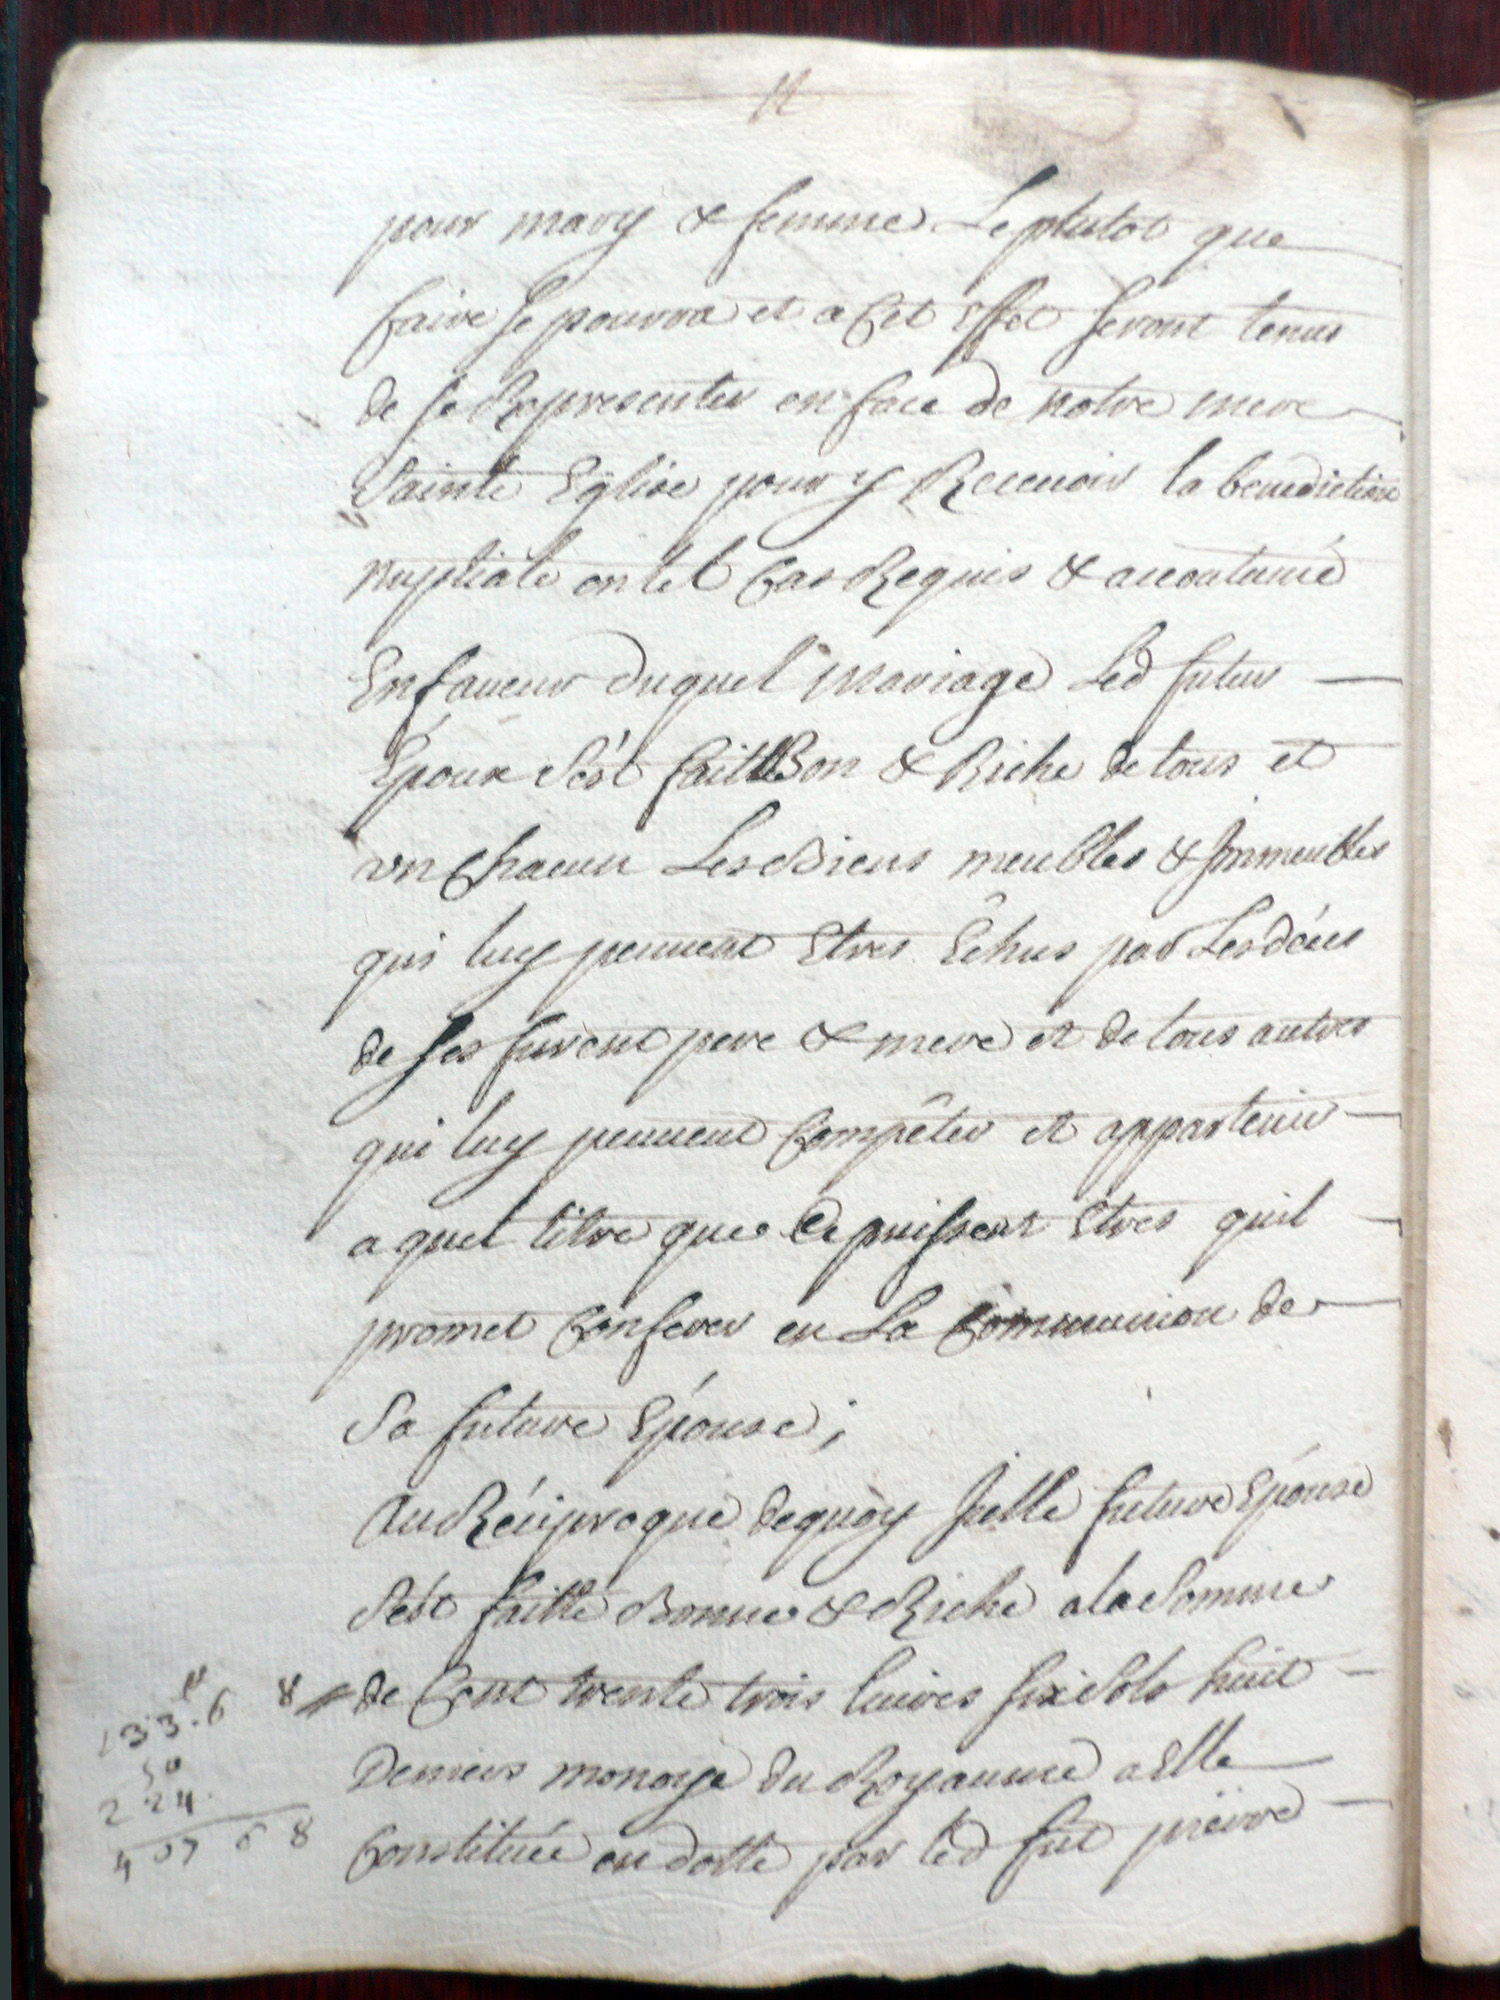 pour mary & femme Le plutot que
faire se pourra et a Cet Effet seront tenus
de se Representer en face de notre mere
Sainte Eglise pour y Recevoir la benediction
Nuptiale en tel Cas Requis & accoutumé
En faveur duquel Mariage Led futur
Époux s'est fait Bon & Riche de tous et
vn Chacun Les Biens meubles & Immeubles
qui luy peuvent Etres Echus par Les décés
de ses furent pere & mere et de tous autres
qui luy peuvent Compêter et appartenir
a quel titre que Ce puissent Etres quil
promet Conferer en La Communion de
Sa future Épouse;
Au Réciproque de quoy Jcelle future Épouse
S'est faitte Bonne & Riche a la Somme
de Cent trente trois Luires six Sols huit
Deniers monoye du Royaume a Elle
Constituée en dotte par led fut pierre
133 . 6 8
50
224 .
407 6 8